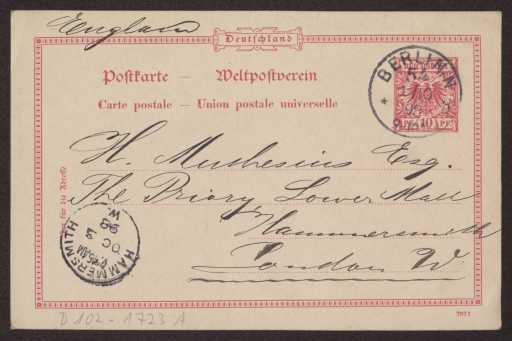 England
Deutschland
Postkarte — Weltpostverein
Carte postale — Union postale universelle
BERLIN.N.
10 PF
H. Muthesius Esq.
The Priory Lower Mall
Hammersmith
London W
HAMMERSMITH
OC 3
95
W.
D 102 - 1723 A